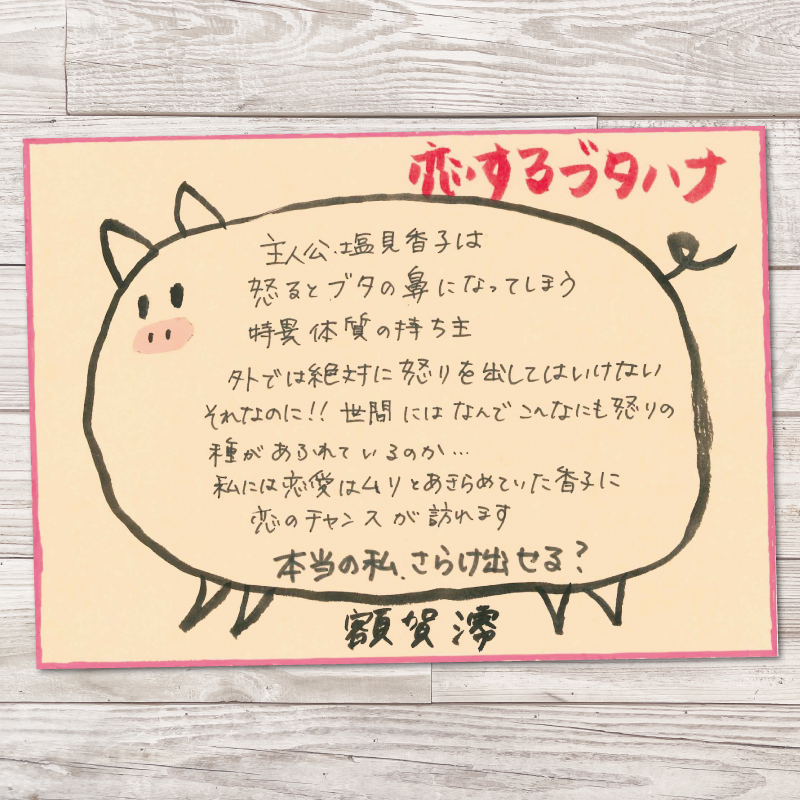 恋するブタハナ
主人公・塩見香子は
怒るとブタの鼻になってしまう
特異体質の持ち主
外では絶対に怒りを出してはいけない
それなのに!!世間にはなんでこんなにも怒りの
種があふれているのか…
私には恋愛はムリとあきらめていた香子に
恋のチャンスが訪れます
本当の私、さらけ出せる?
額賀澪